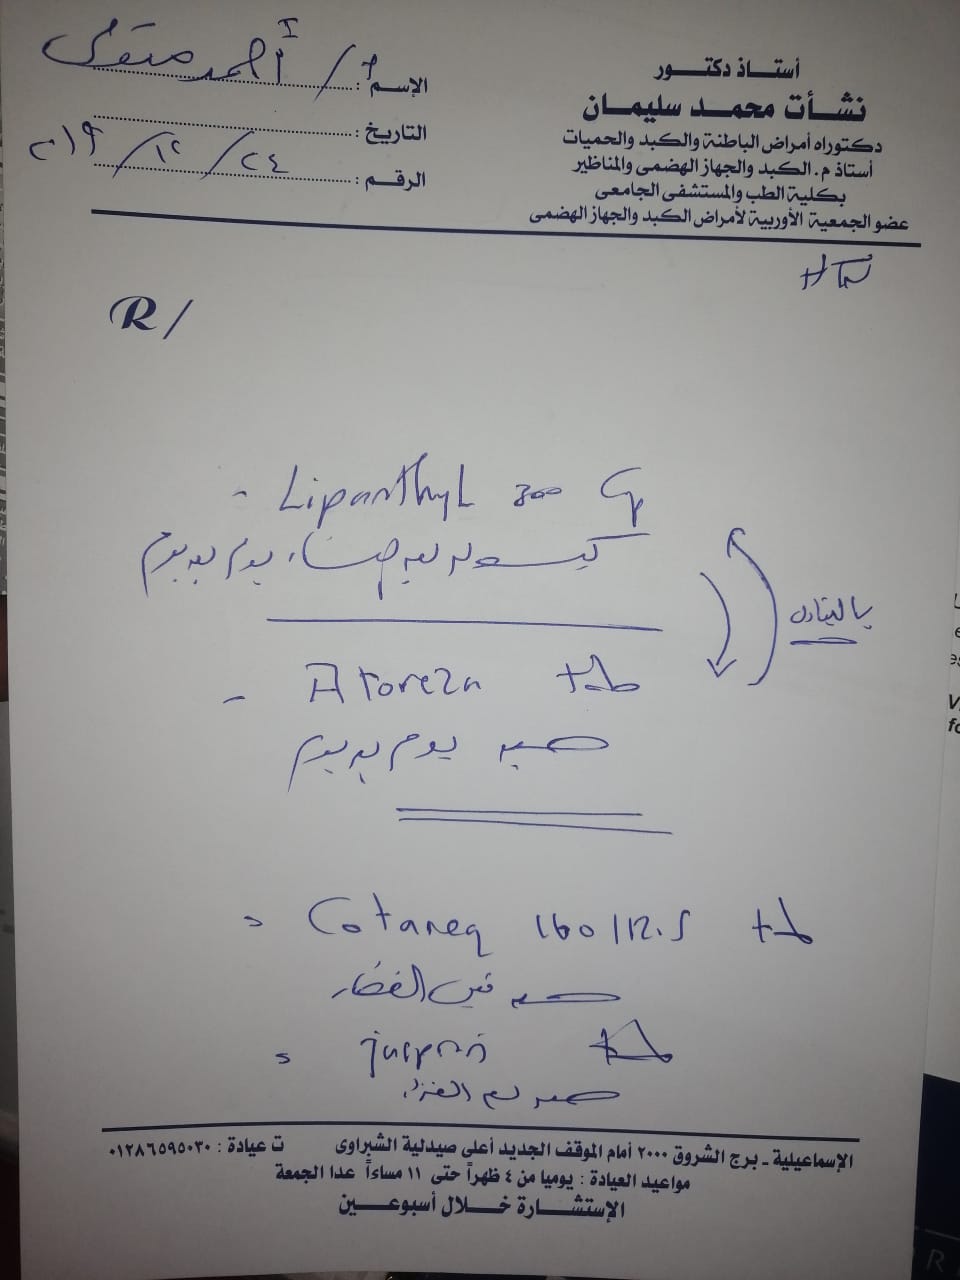 أستاذ دكتور
نشأت محمد سليمان
دكتوراه أمراض الباطنة والكبد والحميات
أستاذ م. الكبد والجهاز الهضمى والمناظير
بكلية الطب والمستشفى الجامعى
عضو الجمعية الأوربية لأمراض الكبد والجهاز الهضمى
الإسم : أ / أحمد
التاريخ :
الرقم : ٢٤ / ١٢ / ٢٠١٩
R /
- Lipanthyl 300 Cp
كبسولة بعد العشاء يوم بعد يوم
بالتبادل
- Atoreza tab
حبة يوم بعد يوم
= Cotareq 160/12.5 tab
حبة قبل الفطار
= jusprin tab
حبة بعد الغداء
الإسماعيلية - برج الشروق ٢٠٠٠ أمام الموقف الجديد أعلى صيدلية الشبراوى ت عيادة : ٠١٢٨٦٥٩٥٠٣٠
مواعيد العيادة : يوميا من ٤ ظهراً حتى ١١ مساءاً عدا الجمعة
الإستشارة خلال أسبوعين